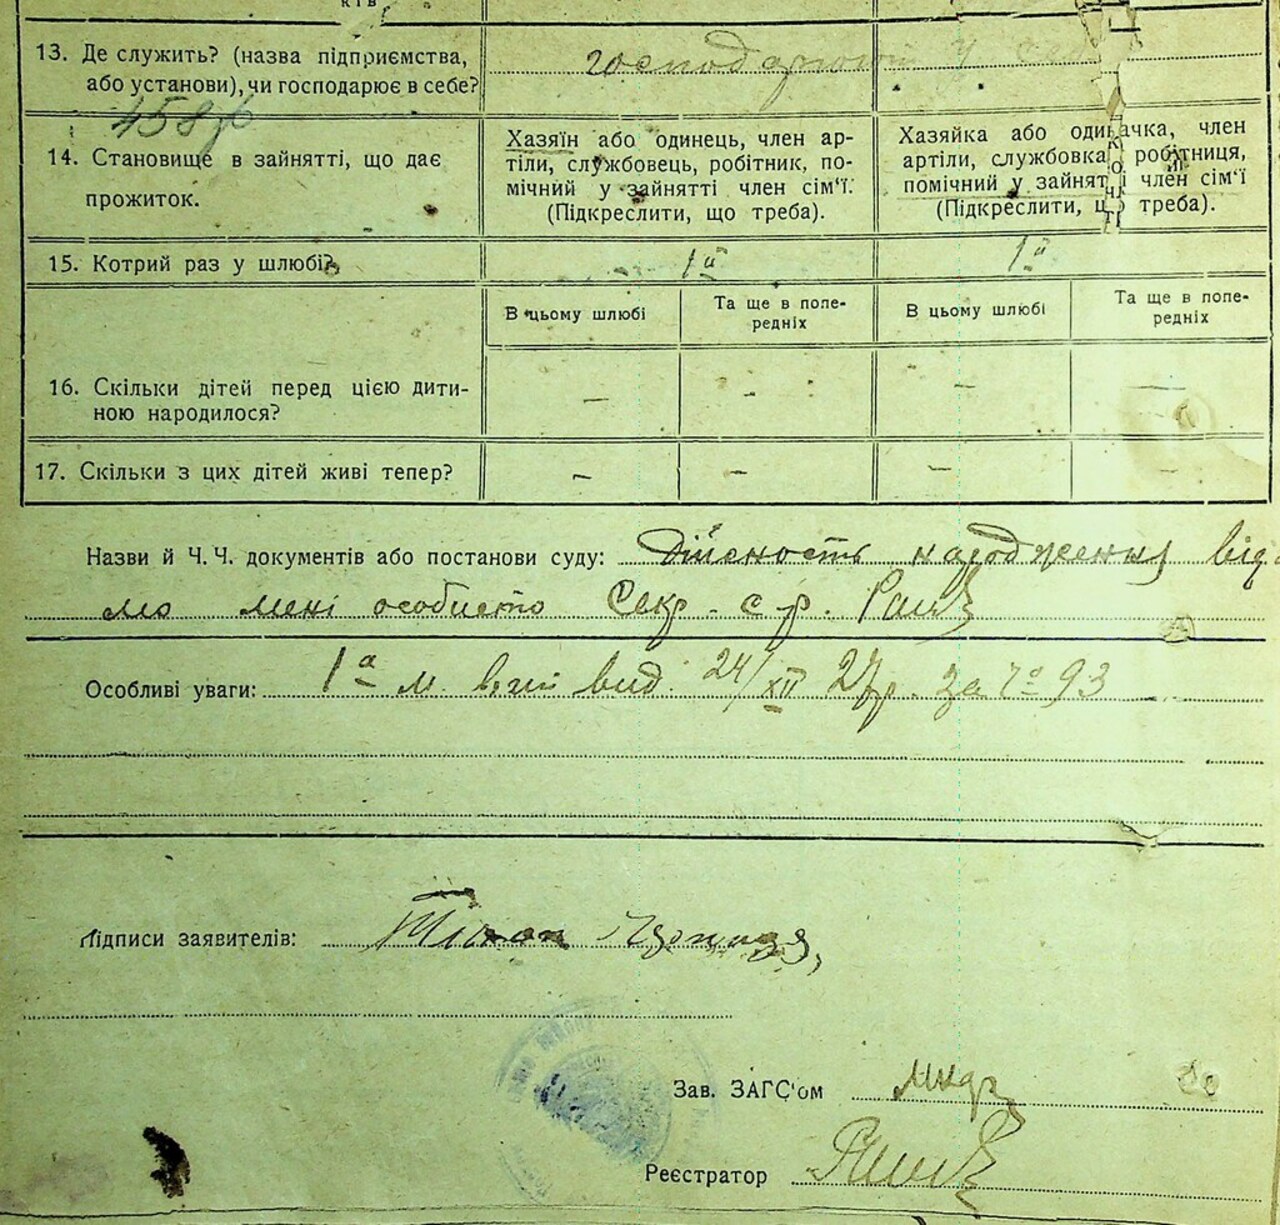 13. Де служить? (назва підприємства,
або установи), чи господарює в себе?
господарює у себе
458
14. Становище в зайнятті, що дає
прожиток.
Хазяїн або одинець, член ар-
тіли, службовець, робітник, по-
мічний у зайнятті член сім'ї.
(Підкреслити, що треба).
Хазяйка або одиначка, член
артіли, службовка, робітниця,
помічний у зайнятті член сім'ї
(Підкреслити, що треба).
15. Котрий раз у шлюбі?
1й
1й
В цьому шлюбі
Та ще в попе-
редніх
В цьому шлюбі
Та ще в попе-
редніх
16. Скільки дітей перед цією дити-
ною народилося?
– – – –
17. Скільки з цих дітей живі тепер?
– – – –
Назви й Ч. Ч. документів або постанови суду: Дійсность народження відо
мо мені особисто Секр. с-р.
Особливі уваги: 1а м. вид. 24/XII 27р. за № 93
Підписи заявителів:
Зав. ЗАГС'ом
Реєстратор